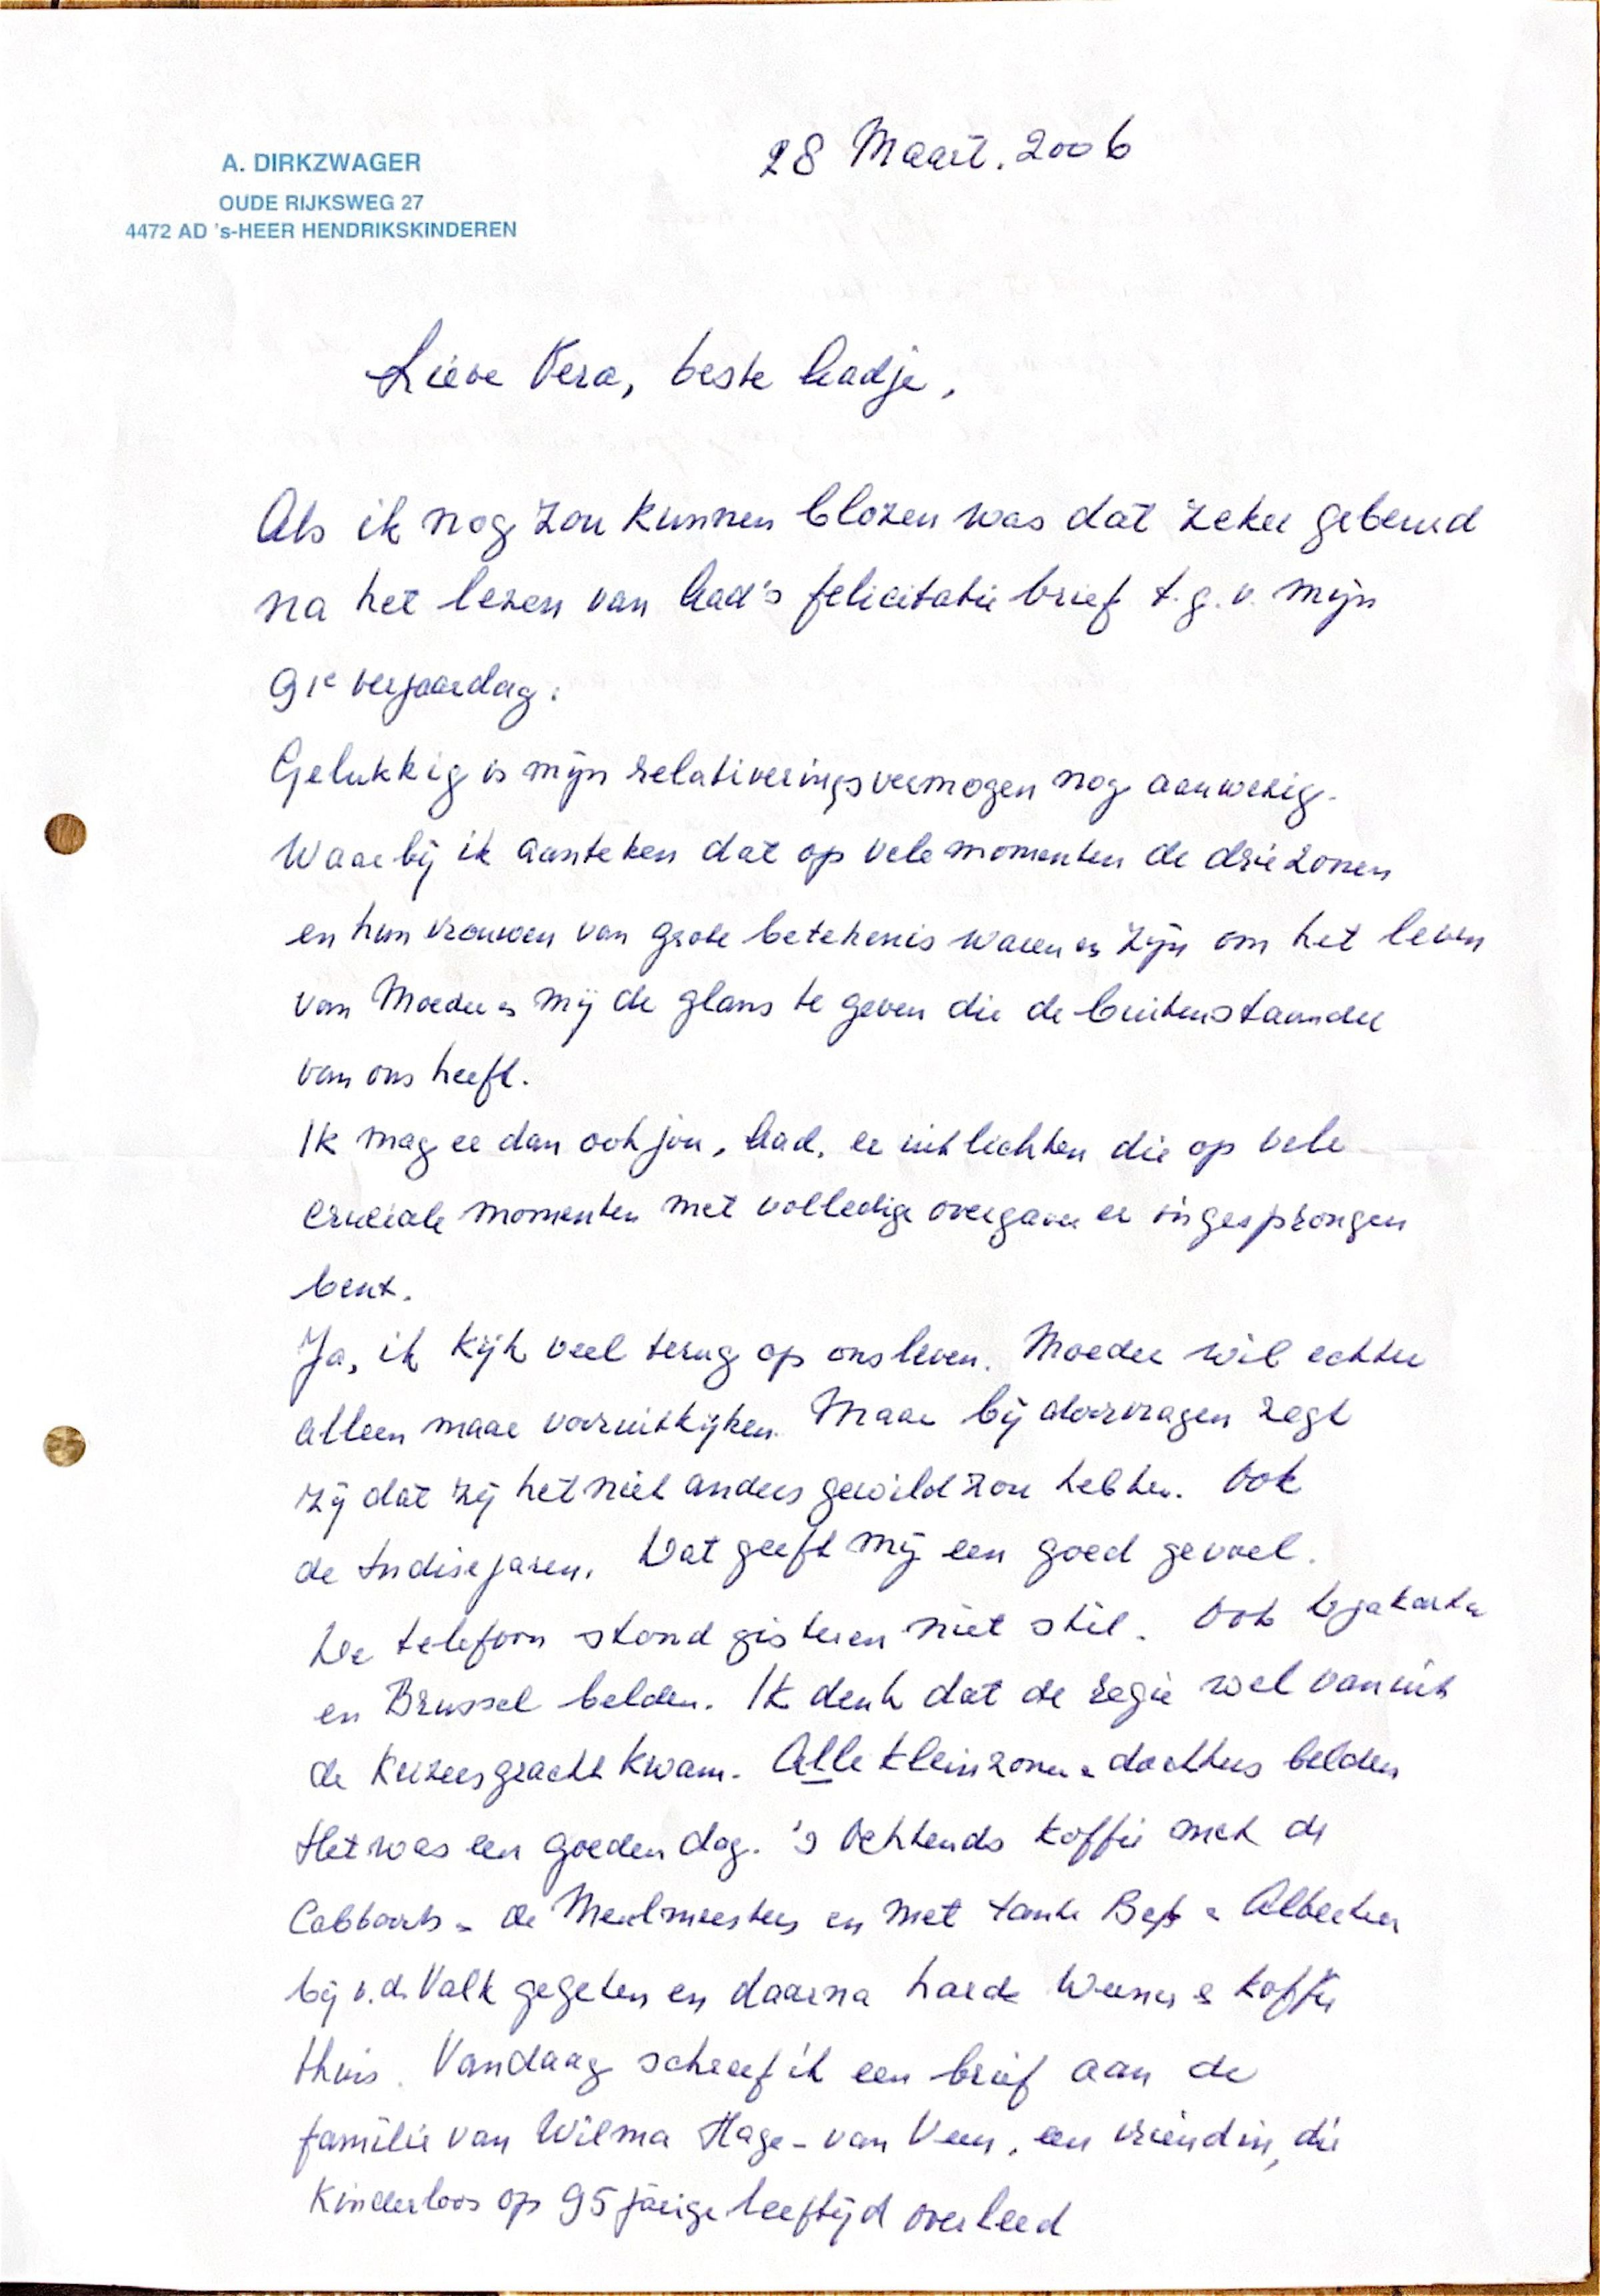 A. DIRKZWAGER
OUDE RIJKSWEG 27
4472 AD 's-HEER HENDRIKSKINDEREN
28 Maart. 2006
Lieve Vera, beste Aadje,
Als ik nog zou kunnen blozen was dat zeker gebeurd
na het lezen van Aad's felicitatie brief t.g.v. mijn
91e verjaardag.
Gelukkig is mijn relativeringsvermogen nog aanwezig.
Waarbij ik aanteken dat op vele momenten de drie zonen
en hun vrouwen van grote betekenis waren en zijn om het leven
van Moeder en mij de glans te geven die de buitenstaander
van ons heeft.
Ik mag er dan ook jou, Aad, er uitlichten die op vele
cruciale momenten met volledige overgave er ingesprongen
bent.
Ja, ik kijk veel terug op ons leven. Moeder wil echter
alleen maar vooruitkijken. Maar bij doorvragen zegt
zij dat zij het niet anders gewild zou hebben. Ook
de Indise jaren. Dat geeft mij een goed gevoel.
De telefoon stond gisteren niet stil. Ook Djakarta
en Brussel belden. Ik denk dat de regie wel vanuit
de Keizersgracht kwam. Alle kleinzonen & dochters belden
Het was een goeden dag. 's Ochtends koffie met de
Cabboorts en de Meulmeesters en met tante Bep &
bij v.d. Valk gegeten en daarna harde Weener & koffie
thuis. Vandaag schreef ik een brief aan de
familie van Wilma Hage - van Veen, een vriendin, die
kinderloos op 95 jarige leeftijd overleed